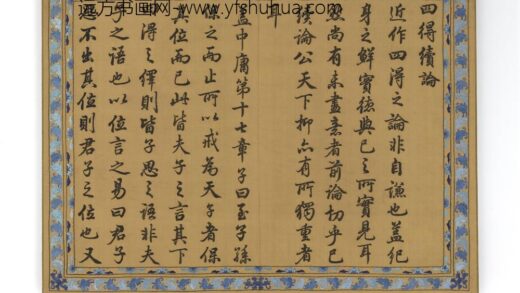 远方书画网-www.yfshuhua.com
四得續論
近作四得之論非自謙也蓋紀
身之鮮實德與已之所實見耳
然尚有未盡意者前論切乎已
續論公天下抑亦有所獨重者
耳
蓋中庸第十七章子曰至子孫
保之而止所以戒為天子者保
其位而已此皆夫子之言其下
得之繹則皆子思之語非夫
子之語也以位言之易曰君子
思不出其位則君子之位也又